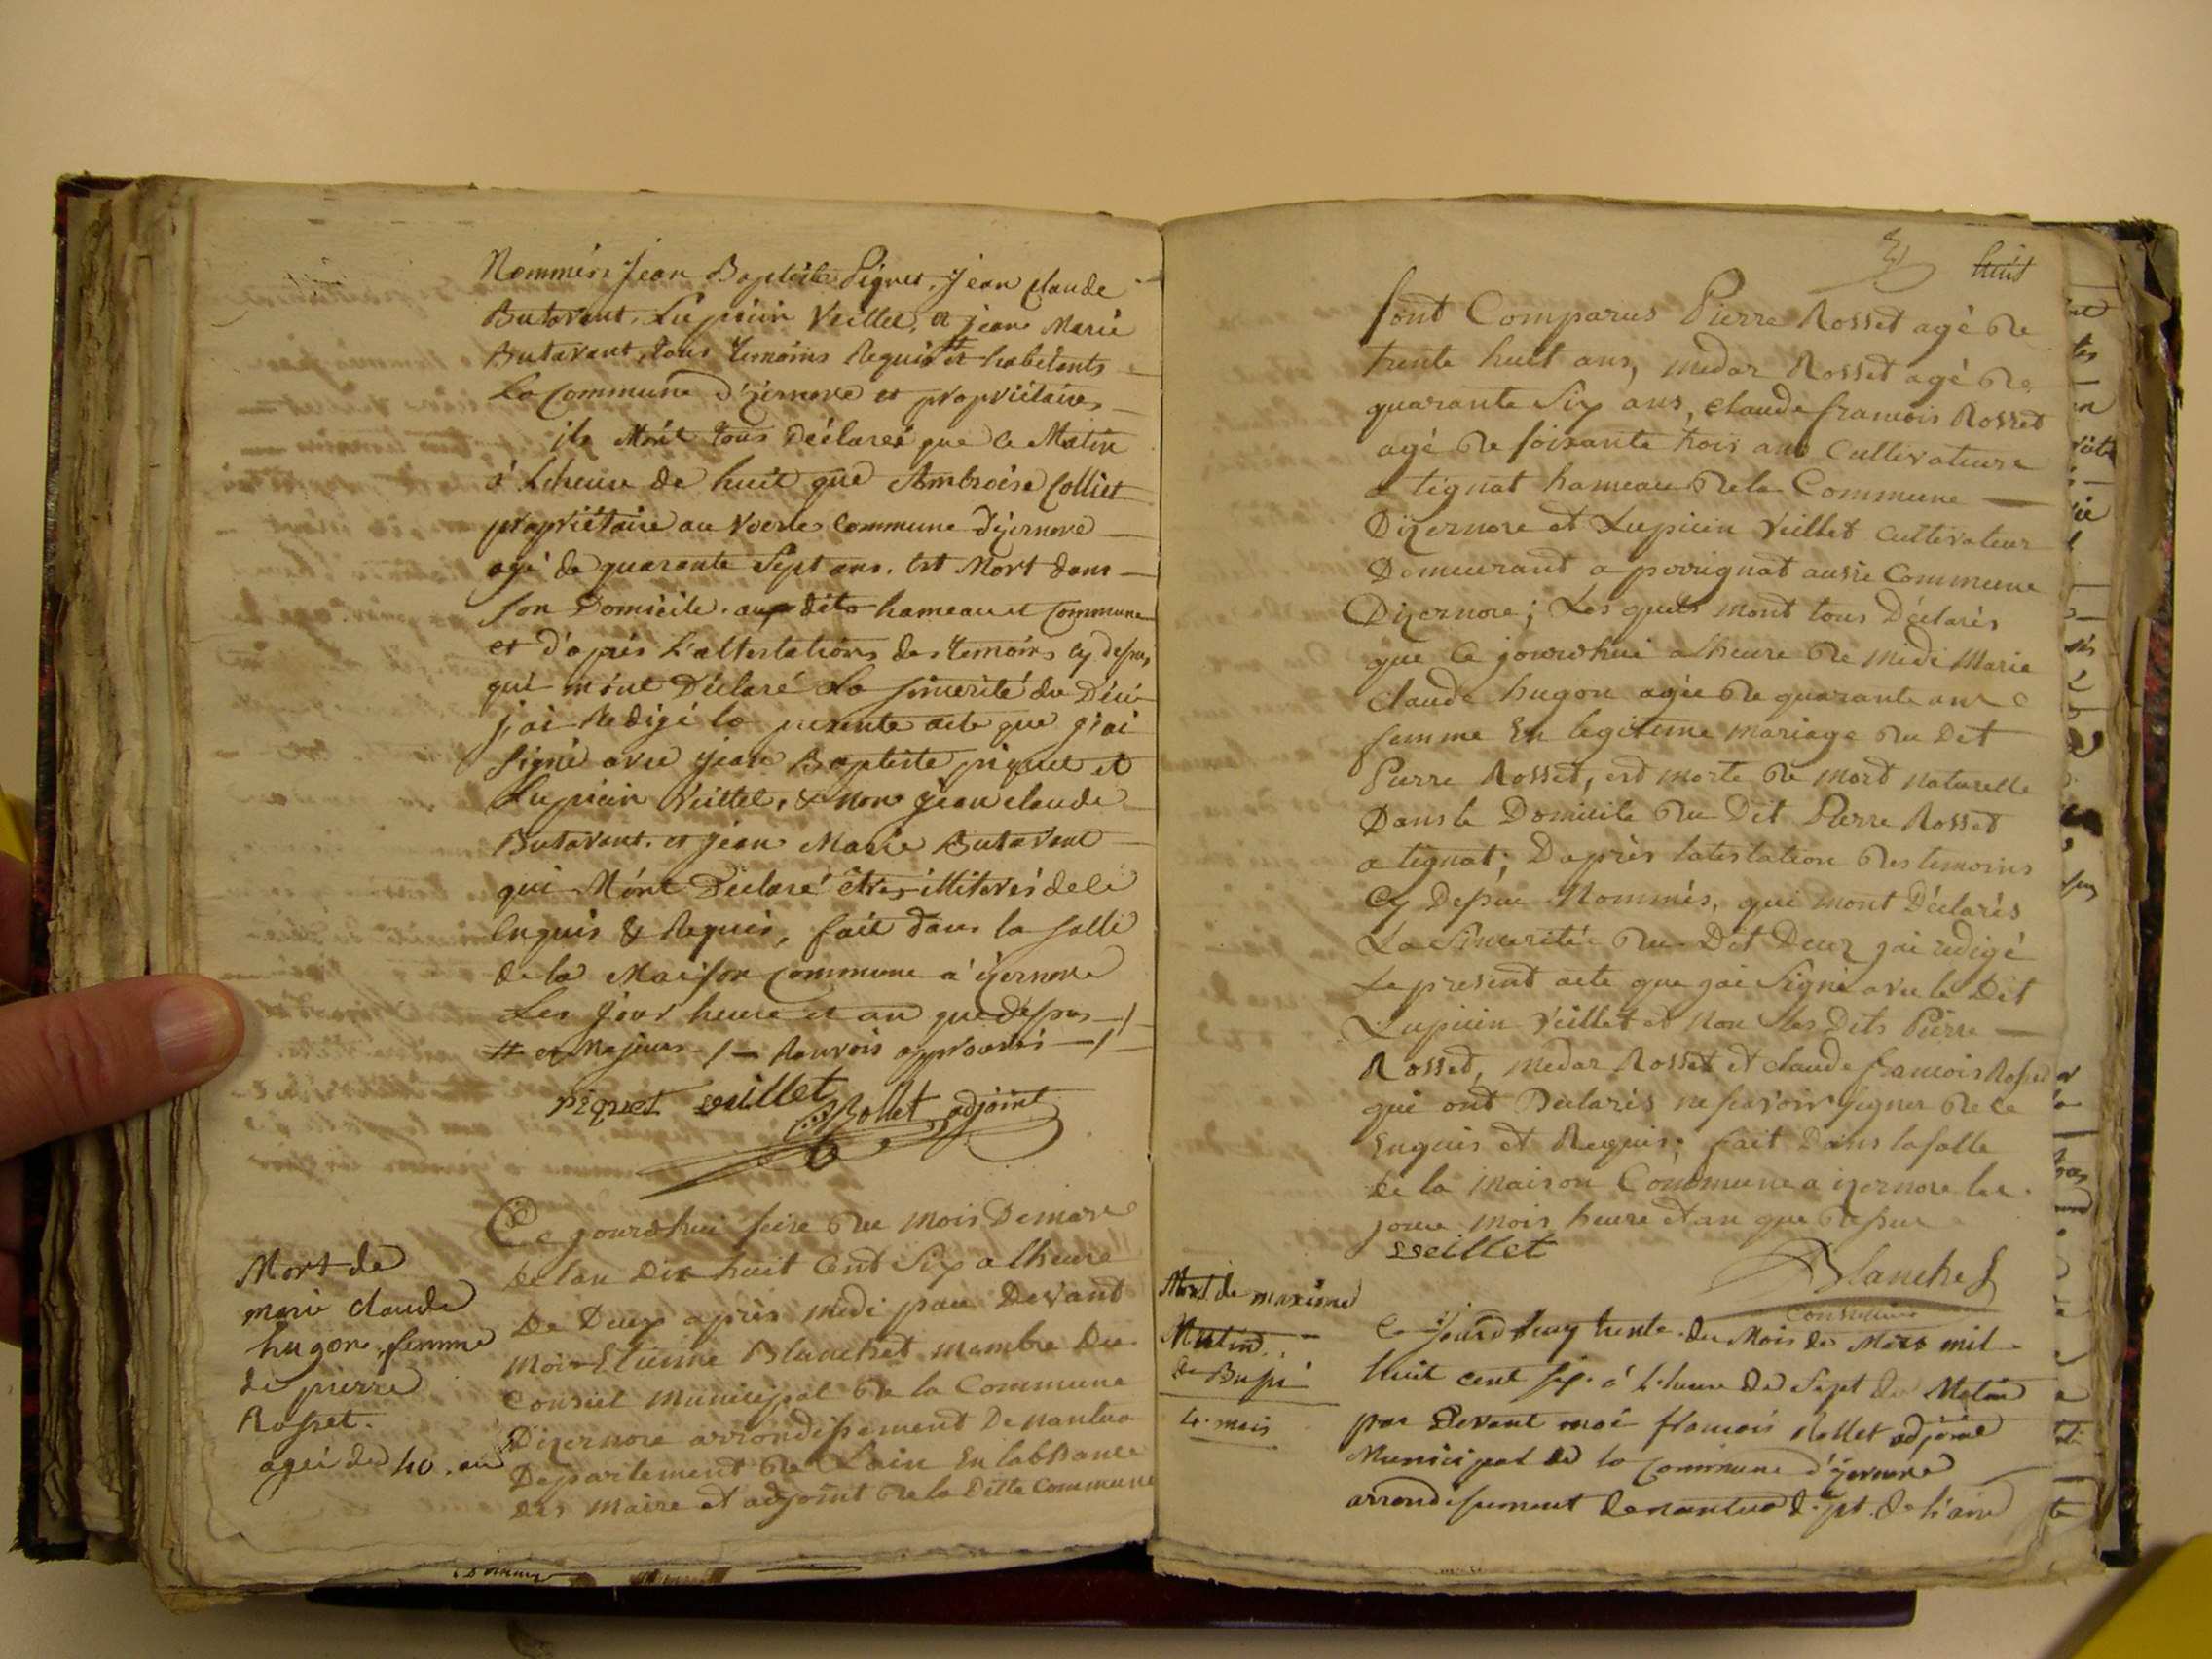 Nommérs Jean Baptiste Piquet, Jean Claude
Butavant, Lupicin Veillet, et jean Marie
Butavant, tous temoins Requis # et habitants
La Commune d'izernore et propriétaires
ils M'ont tous Déclareé que ce Matin
à Lheure de huit que Ambroise Colliet
propriétaire au Voerle Commune d'izernore
agé de quarante Sept ans, Est Mort dans
son Domicile, aux dits hameau et Commune
et d'après L'attestations des temoins cy dessus
qui m'ont Déclaré La sincerité du Décé
j'ai Redigé la presente acte que j'ai
signé avec Jean Baptiste piquet et
Lupicin Veillet, & non Jean claude
Butavant, et Jean Marie Butavant
qui M'ont Déclaré êtres illiterés de ce
Enquis & Requis, fait dans la salle
de la Maison Commune à izernore
Les Jour heure et an que dessus
# et Majeurs / Renvois approuvés
piquet veillet
Rollet adjoint
Mort de
marie claude
hugon, femme
de pierre
Rosset.
ageé de 40. ans
Ce jourdhui seise du mois De mars
de lan Dix huit Cent Six a lheure
De Deux après midi par Devant
Moi Etienne Blanchet membre Du
Conseil municipal de la Commune
Dizernore arrondissement De nantua
Departement de Lain En labsance
des maire et adjoint de la Ditte Commune
huit
sont Comparus Pierre Rosset agé de
trente huit ans, medar Rosset agé de
quarante Six ans, claude francois Rosset
agé de soisante trois ans Cultivateurs
a tignat hameau de la Commune
Dizernore et Lupicin Veillet cultivateur
Demeurant a perignat aussie Commune
Dizernore; Les quels mont tous Déclarés
que Ce jourdhui a lheure de midi Marie
Claude hugon agée de quarante ans
femme En legitime mariage du Dit
Pierre Rosset, est morte de mort naturelle
Dans le Domicile du Dit Pierre Rosset
a tignat; Daprès latestation des temoins
Cy Dessue Nommés, qui mont Déclarés
La Sinceritée du Dit Decez jai redigé
Le present acte que jai Signé avec le Dit
Lupicin Veillet et Non les Dits Pierre
Rosset, medar Rosset et claude francois Rosset
qui ont Déclarés ne savoir signer de ce
Enquis et Requis; fait Dans la salle
de la maison Commune a izernore les
jour mois heure et an que dessue
veillet
Blanchet
Conseillier
Mort de maxime
Mutin
de Bussi
4. mois
Ce Jourdhuy trente du Mois de Mars mil
huit cent six à L'heure de Sept du Matin
par Devant moi francois Rollet adjoint
Municipal de la Commune d'izernore
arrondissement de nantua dept. de L'ain